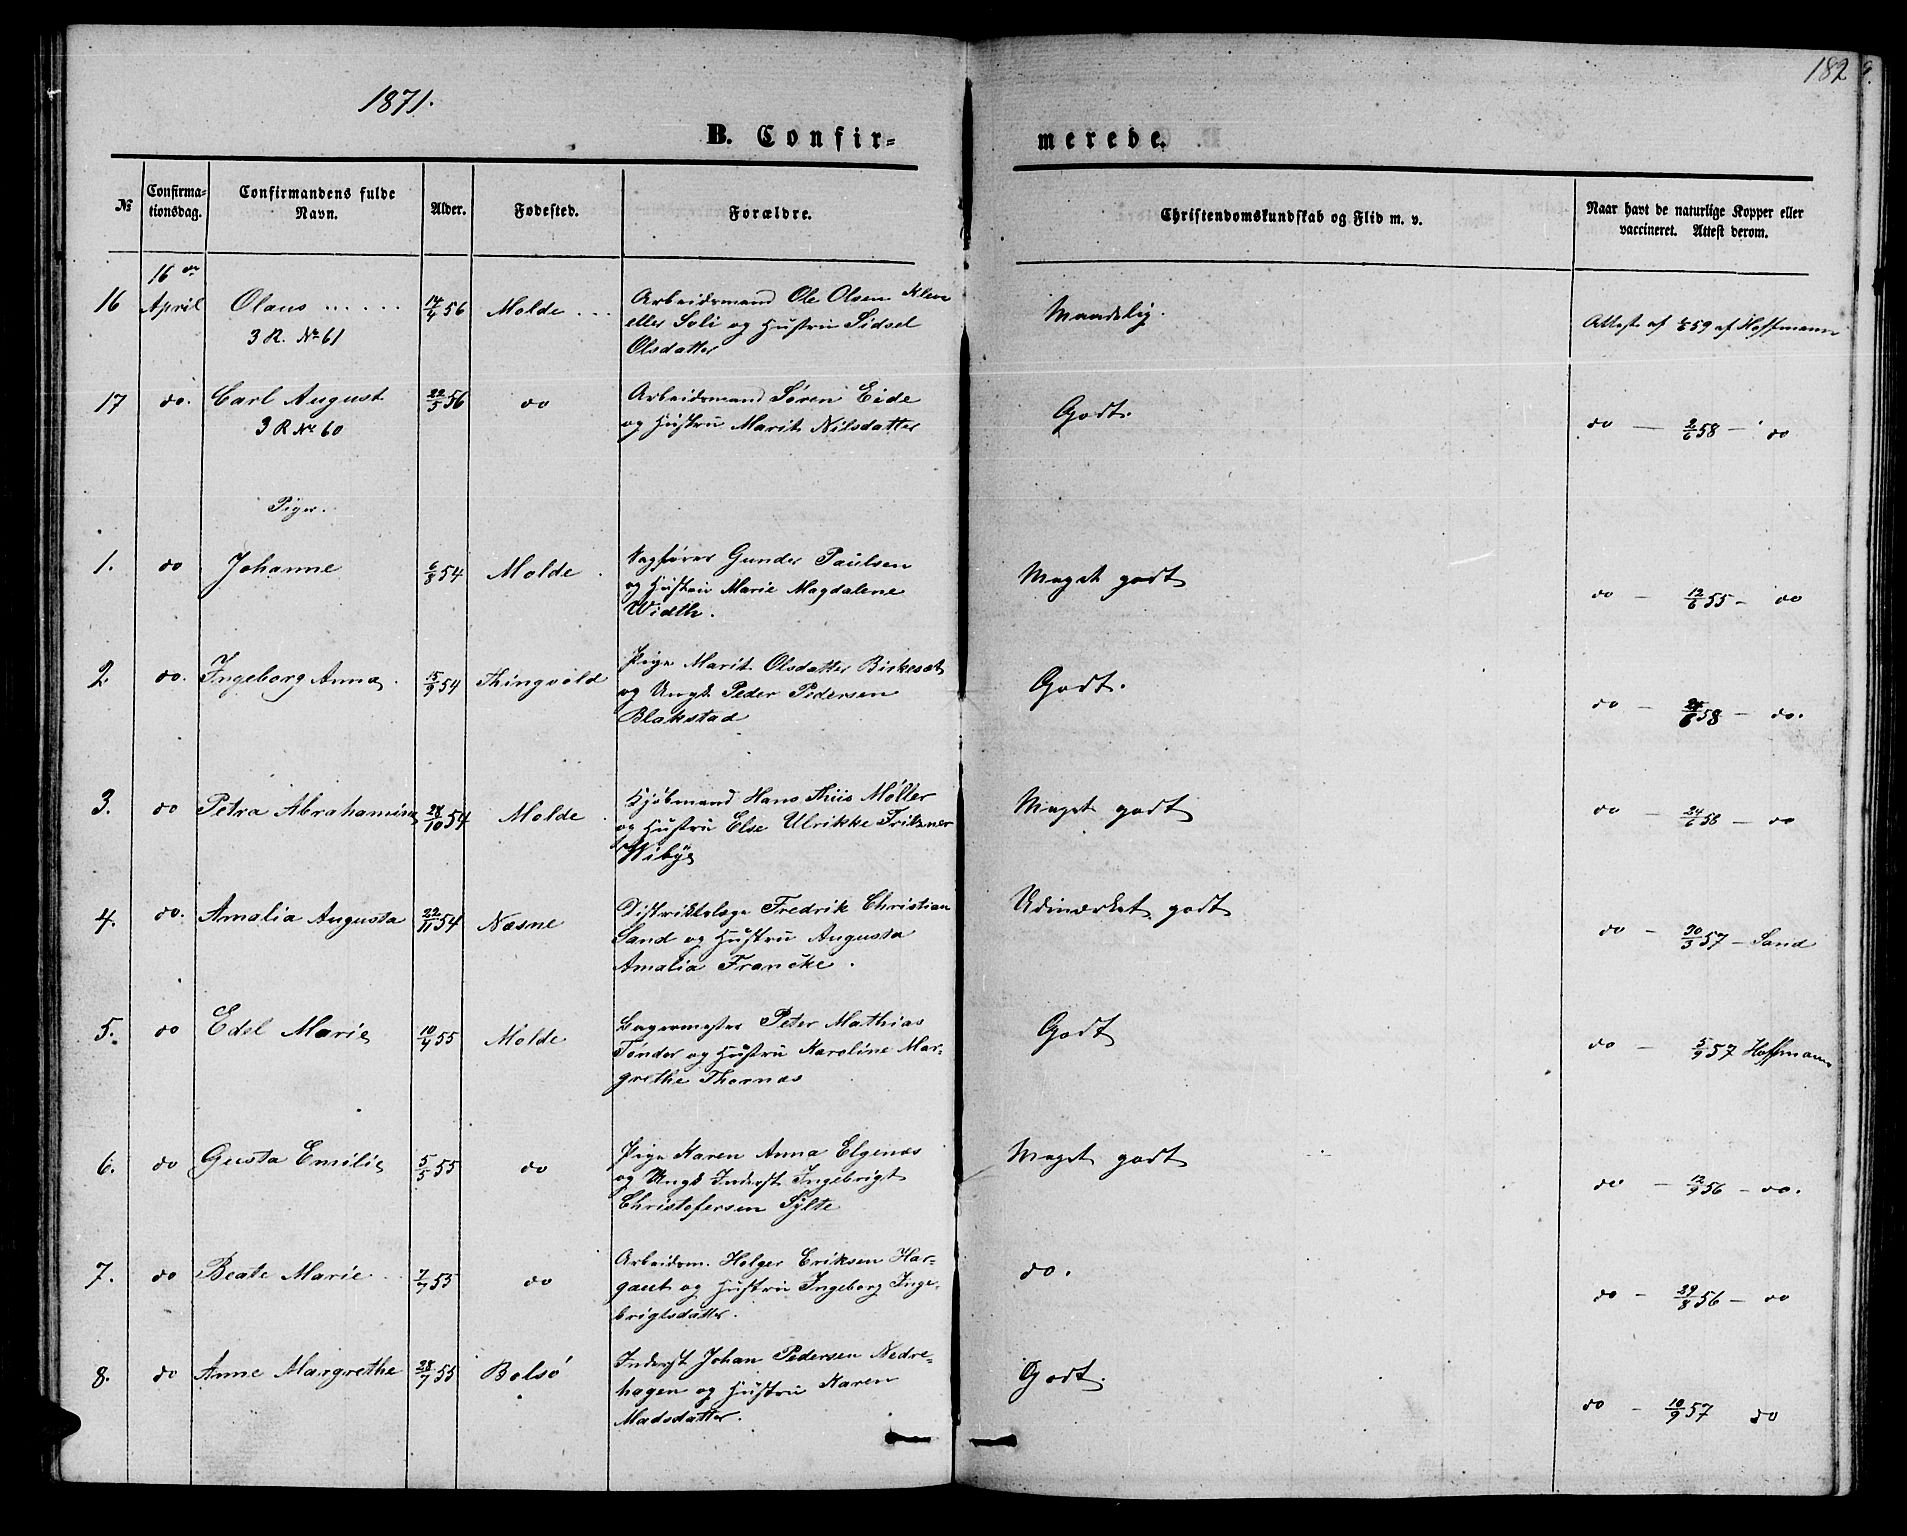 1871.
182
B. Confir=
merede.
№
Confirma=
tionsdag.
Confirmandens fulde
Navn.
Alder.
Fødested.
Forældre.
Christendomskundskab og Flid m. v.
Naar havt de naturlige Kopper eller
vaccineret. Attest derom.
16 April Olaus 14/4 56 Molde
3 R. No 61
Arbeidsmand Ole Olsen Kleve
eller Soli og Hustru Sidsel
Olsdatter
Maadelig.
Attest af 59 af Hoffmann
17 do. Carl August 22/5 56 do
3 R No 60
Arbeidsmand Søren Eide
og Hustru Marit Nilsdatter
Godt.
do — 2/6 58 — do
Piger.
1. do Johanne 6/8 54 Molde
Sagfører Gunder Paulsen
og Hustru Marie Magdalene
Width.
Meget godt
do — 12/6 55 — do
2. do. Ingeborg Anna 15/9 54 Thingvold
Pige Marit Olsdatter Birkesæt
og Ungk. Peder Pedersen
Blakstad
Godt.
do — 58 — do.
3. do Petra Abrahamine 28/10 54 Molde
Kjøbmand Hans Thiis Møller
og Hustru Else Ulrikke Friksner
Wibye
Meget godt
do — 24/6 58 — do
4. do. Amalia Augusta 22/11 54 Næsne
Distriktslæge Fredrik Christian
Sand og Hustru Augusta
Amalia Francke.
Udmærket godt
do — 30/3 57 — Sand
5. do Edel Marie 10/4 55 Molde
Bagermester Peter Mathias
Tønder og Hustru Karoline Mar-
grethe Thornæs
Godt
do — 5/9 57 Hoffmann
6. do Gusta Emilie 5/5 55 do
Pige Karen Anna Elgenæs
og Ungk. Inderst Ingebrigt
Christofersen Sylte
Meget godt
do — 12/9 56 — do.
7. do Beate Marie 7/7 53 do
Arbeidsm. Holger Eriksen Har-
gaut og Hustru Ingeborg Inge-
brigtsdatter.
do.
do — 29/8 56 — do
8. do Anne Margrethe 28/7 55 Bolsø
Inderst Johan Pedersen Nedre-
hagen og Hustru Karen
Madsdatter.
Godt.
do — 10/9 57 do